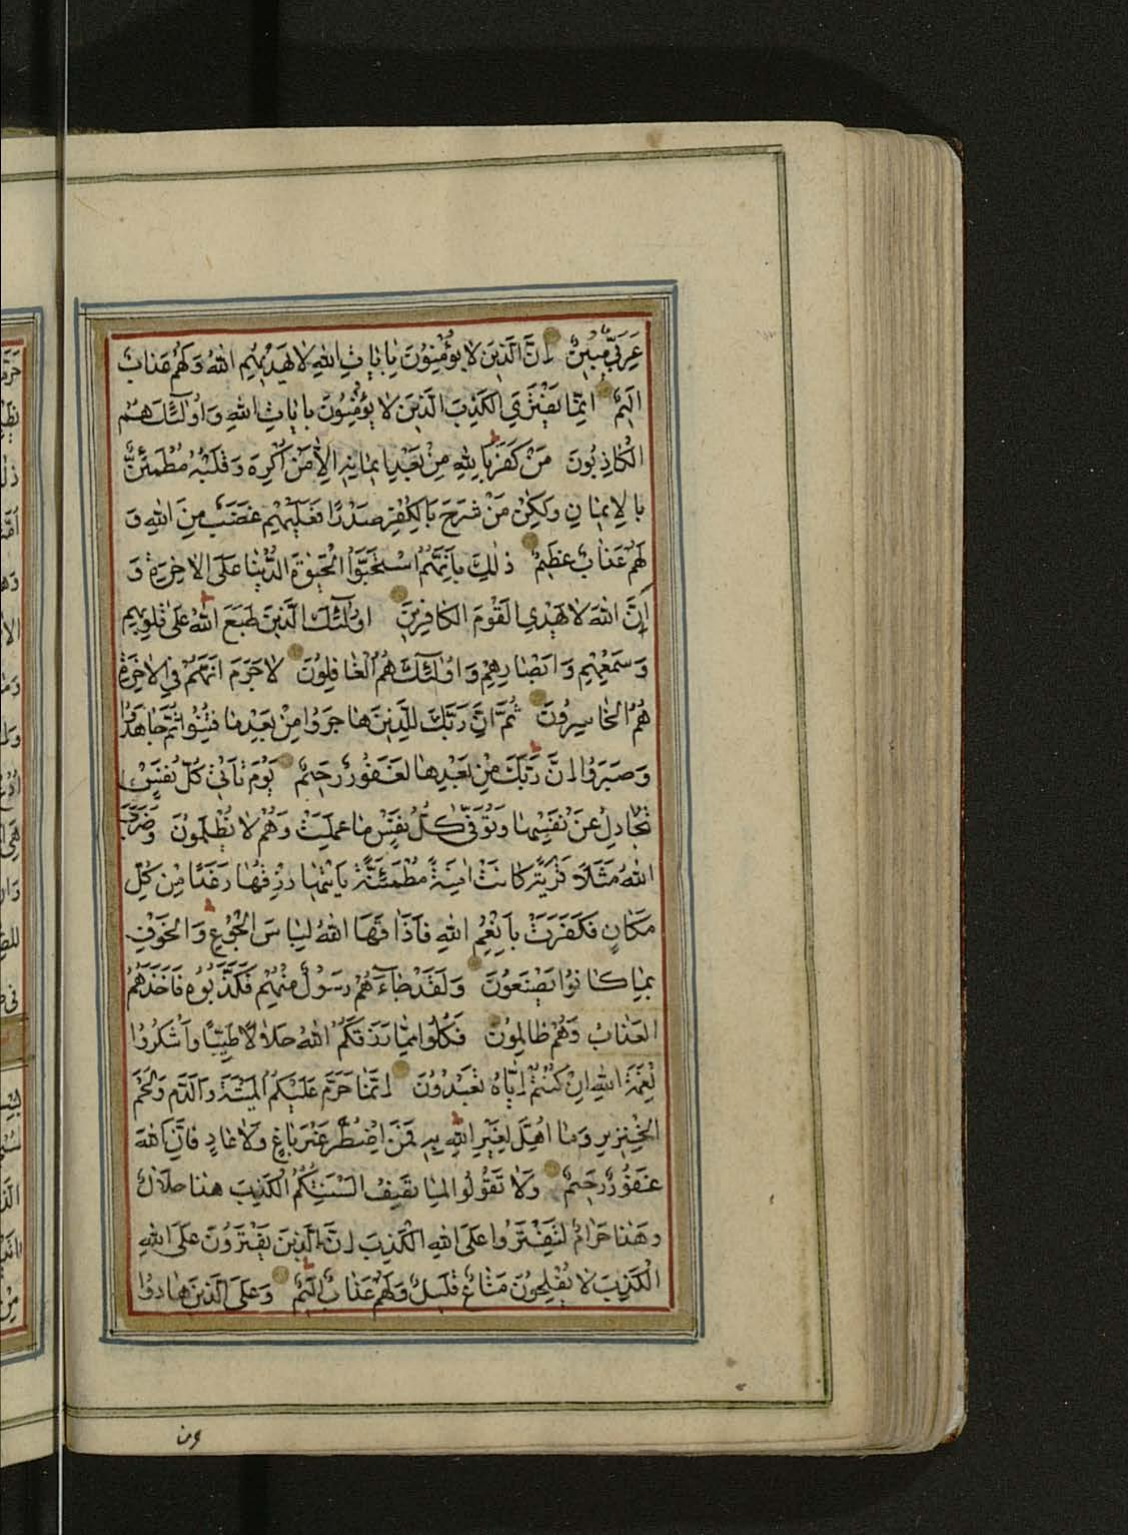 عَرَبِيٌّ مُبِينٌ اِنَّ الَّذِينَ لَا يُؤْمِنُونَ بِاٰيَاتِ اللهِ لَا يَهْدِيهِمُ اللهُ وَلَهُمْ عَذَابٌ
اَلِيمٌ اِنَّمَا يَفْتَرِي الْكَذِبَ الَّذِينَ لَا يُؤْمِنُونَ بِاٰيَاتِ اللهِ وَاُولٰئِكَ هُمُ
الْكَاذِبُونَ مَنْ كَفَرَ بِاللهِ مِنْ بَعْدِ اِيمَانِهِ اِلَّا مَنْ اُكْرِهَ وَقَلْبُهُ مُطْمَئِنٌّ
بِالْاِيمَانِ وَلٰكِنْ مَنْ شَرَحَ بِالْكُفْرِ صَدْرًا فَعَلَيْهِمْ غَضَبٌ مِنَ اللهِ وَ
لَهُمْ عَذَابٌ عَظِيمٌ ذٰلِكَ بِاَنَّهُمُ اسْتَحَبُّوا الْحَيٰوةَ الدُّنْيَا عَلَى الْاٰخِرَةِ وَ
اَنَّ اللهَ لَا يَهْدِي الْقَوْمَ الْكَافِرِينَ اُولٰئِكَ الَّذِينَ طَبَعَ اللهُ عَلٰى قُلُوبِهِمْ
وَسَمْعِهِمْ وَاَبْصَارِهِمْ وَاُولٰئِكَ هُمُ الْغَافِلُونَ لَا جَرَمَ اَنَّهُمْ فِي الْاٰخِرَةِ
هُمُ الْخَاسِرُونَ ثُمَّ اِنَّ رَبَّكَ لِلَّذِينَ هَاجَرُوا مِنْ بَعْدِ مَا فُتِنُوا ثُمَّ جَاهَدُوا
وَصَبَرُوا اِنَّ رَبَّكَ مِنْ بَعْدِهَا لَغَفُورٌ رَحِيمٌ يَوْمَ تَأْتِي كُلُّ نَفْسٍ
تُجَادِلُ عَنْ نَفْسِهَا وَتُوَفّٰى كُلُّ نَفْسٍ مَا عَمِلَتْ وَهُمْ لَا يُظْلَمُونَ وَضَرَبَ
اللهُ مَثَلًا قَرْيَةً كَانَتْ اٰمِنَةً مُطْمَئِنَّةً يَأْتِيهَا رِزْقُهَا رَغَدًا مِنْ كُلِّ
مَكَانٍ فَكَفَرَتْ بِاَنْعُمِ اللهِ فَاَذَاقَهَا اللهُ لِبَاسَ الْجُوعِ وَالْخَوْفِ
بِمَا كَانُوا يَصْنَعُونَ وَلَقَدْ جَاءَهُمْ رَسُولٌ مِنْهُمْ فَكَذَّبُوهُ فَاَخَذَهُمُ
الْعَذَابُ وَهُمْ ظَالِمُونَ فَكُلُوا مِمَّا رَزَقَكُمُ اللهُ حَلَالًا طَيِّبًا وَاشْكُرُوا
نِعْمَةَ اللهِ اِنْ كُنْتُمْ اِيَّاهُ تَعْبُدُونَ اِنَّمَا حَرَّمَ عَلَيْكُمُ الْمَيْتَةَ وَالدَّمَ وَلَحْمَ
الْخِنْزِيرِ وَمَا اُهِلَّ لِغَيْرِ اللهِ بِهِ فَمَنِ اضْطُرَّ غَيْرَ بَاغٍ وَلَا عَادٍ فَاِنَّ اللهَ
غَفُورٌ رَحِيمٌ وَلَا تَقُولُوا لِمَا تَصِفُ اَلْسِنَتُكُمُ الْكَذِبَ هٰذَا حَلَالٌ
وَهٰذَا حَرَامٌ لِتَفْتَرُوا عَلَى اللهِ الْكَذِبَ اِنَّ الَّذِينَ يَفْتَرُونَ عَلَى اللهِ
الْكَذِبَ لَا يُفْلِحُونَ مَتَاعٌ قَلِيلٌ وَلَهُمْ عَذَابٌ اَلِيمٌ وَعَلَى الَّذِينَ هَادُوا